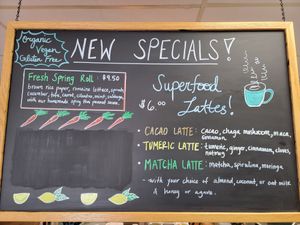 Organic
Vegan
Gluten Free
NEW SPECIALS!
Fresh Spring Roll : $9.50
brown rice paper, romaine lettuce, sprouts,
cucumber, tofu, carrot, cilantro, mint, cabbage,
with our homemade spicy thai peanut sauce.
Superfood
Lattes!
$6.00
• CACAO LATTE: cacao, chaga mushroom, maca,
cinnamon
• TUMERIC LATTE: tumeric, ginger, cinnamon, cloves,
nutmeg
• MATCHA LATTE: matcha, spirulina, moringa
- with your choice of almond, coconut, or oat milk
& honey or agave.